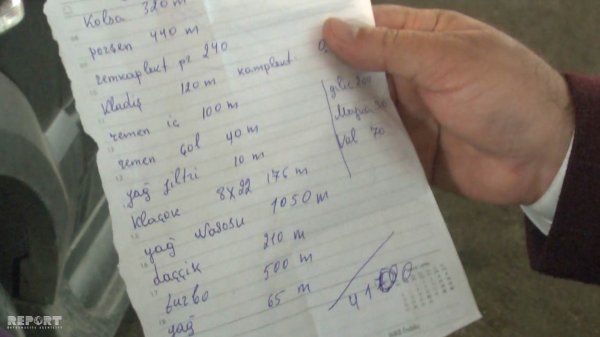 Kolsa 320 m
porşen 440 m
remkaplekt pr 240
Kladış 120 m komplekt
remen ic 100 m
remen çol 40 m
yağ filtri 10 m
Klaçok 8x22 176 m
yağ nasosu 1050 m
Daççik 210 m
turbo 500 m
yağ 65 m
gilic 200
30
Val 70
REPORT